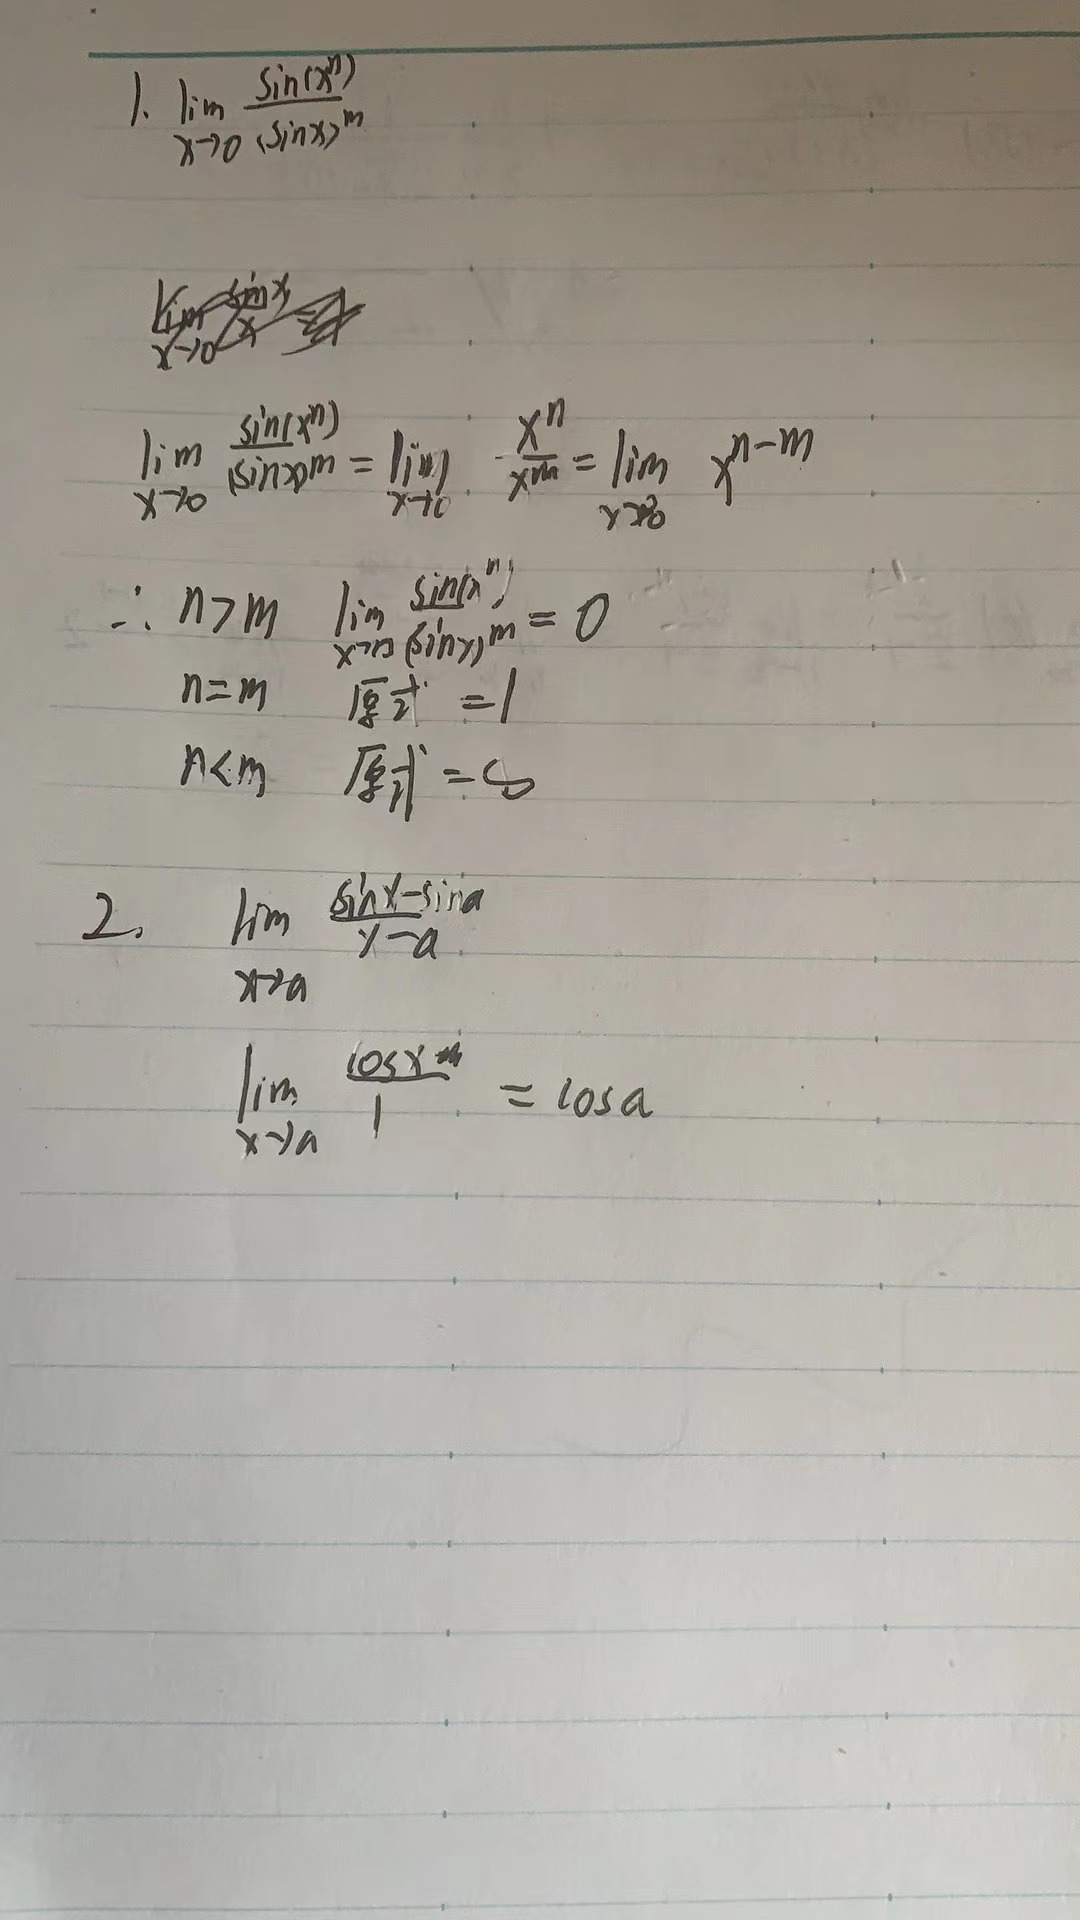 1. lim x→0 sin(xⁿ)/(sinx)ᵐ
lim x→0 sin(xⁿ)/(sinx)ᵐ = lim x→0 xⁿ/xᵐ = lim x→0 xⁿ⁻ᵐ
∴ n>m lim x→0 sin(xⁿ)/(sinx)ᵐ = 0
n=m 原式 =1
n<m 原式 =∞
2. lim x→a (sinx-sina)/(x-a)
lim x→a cosx/1 = cosa